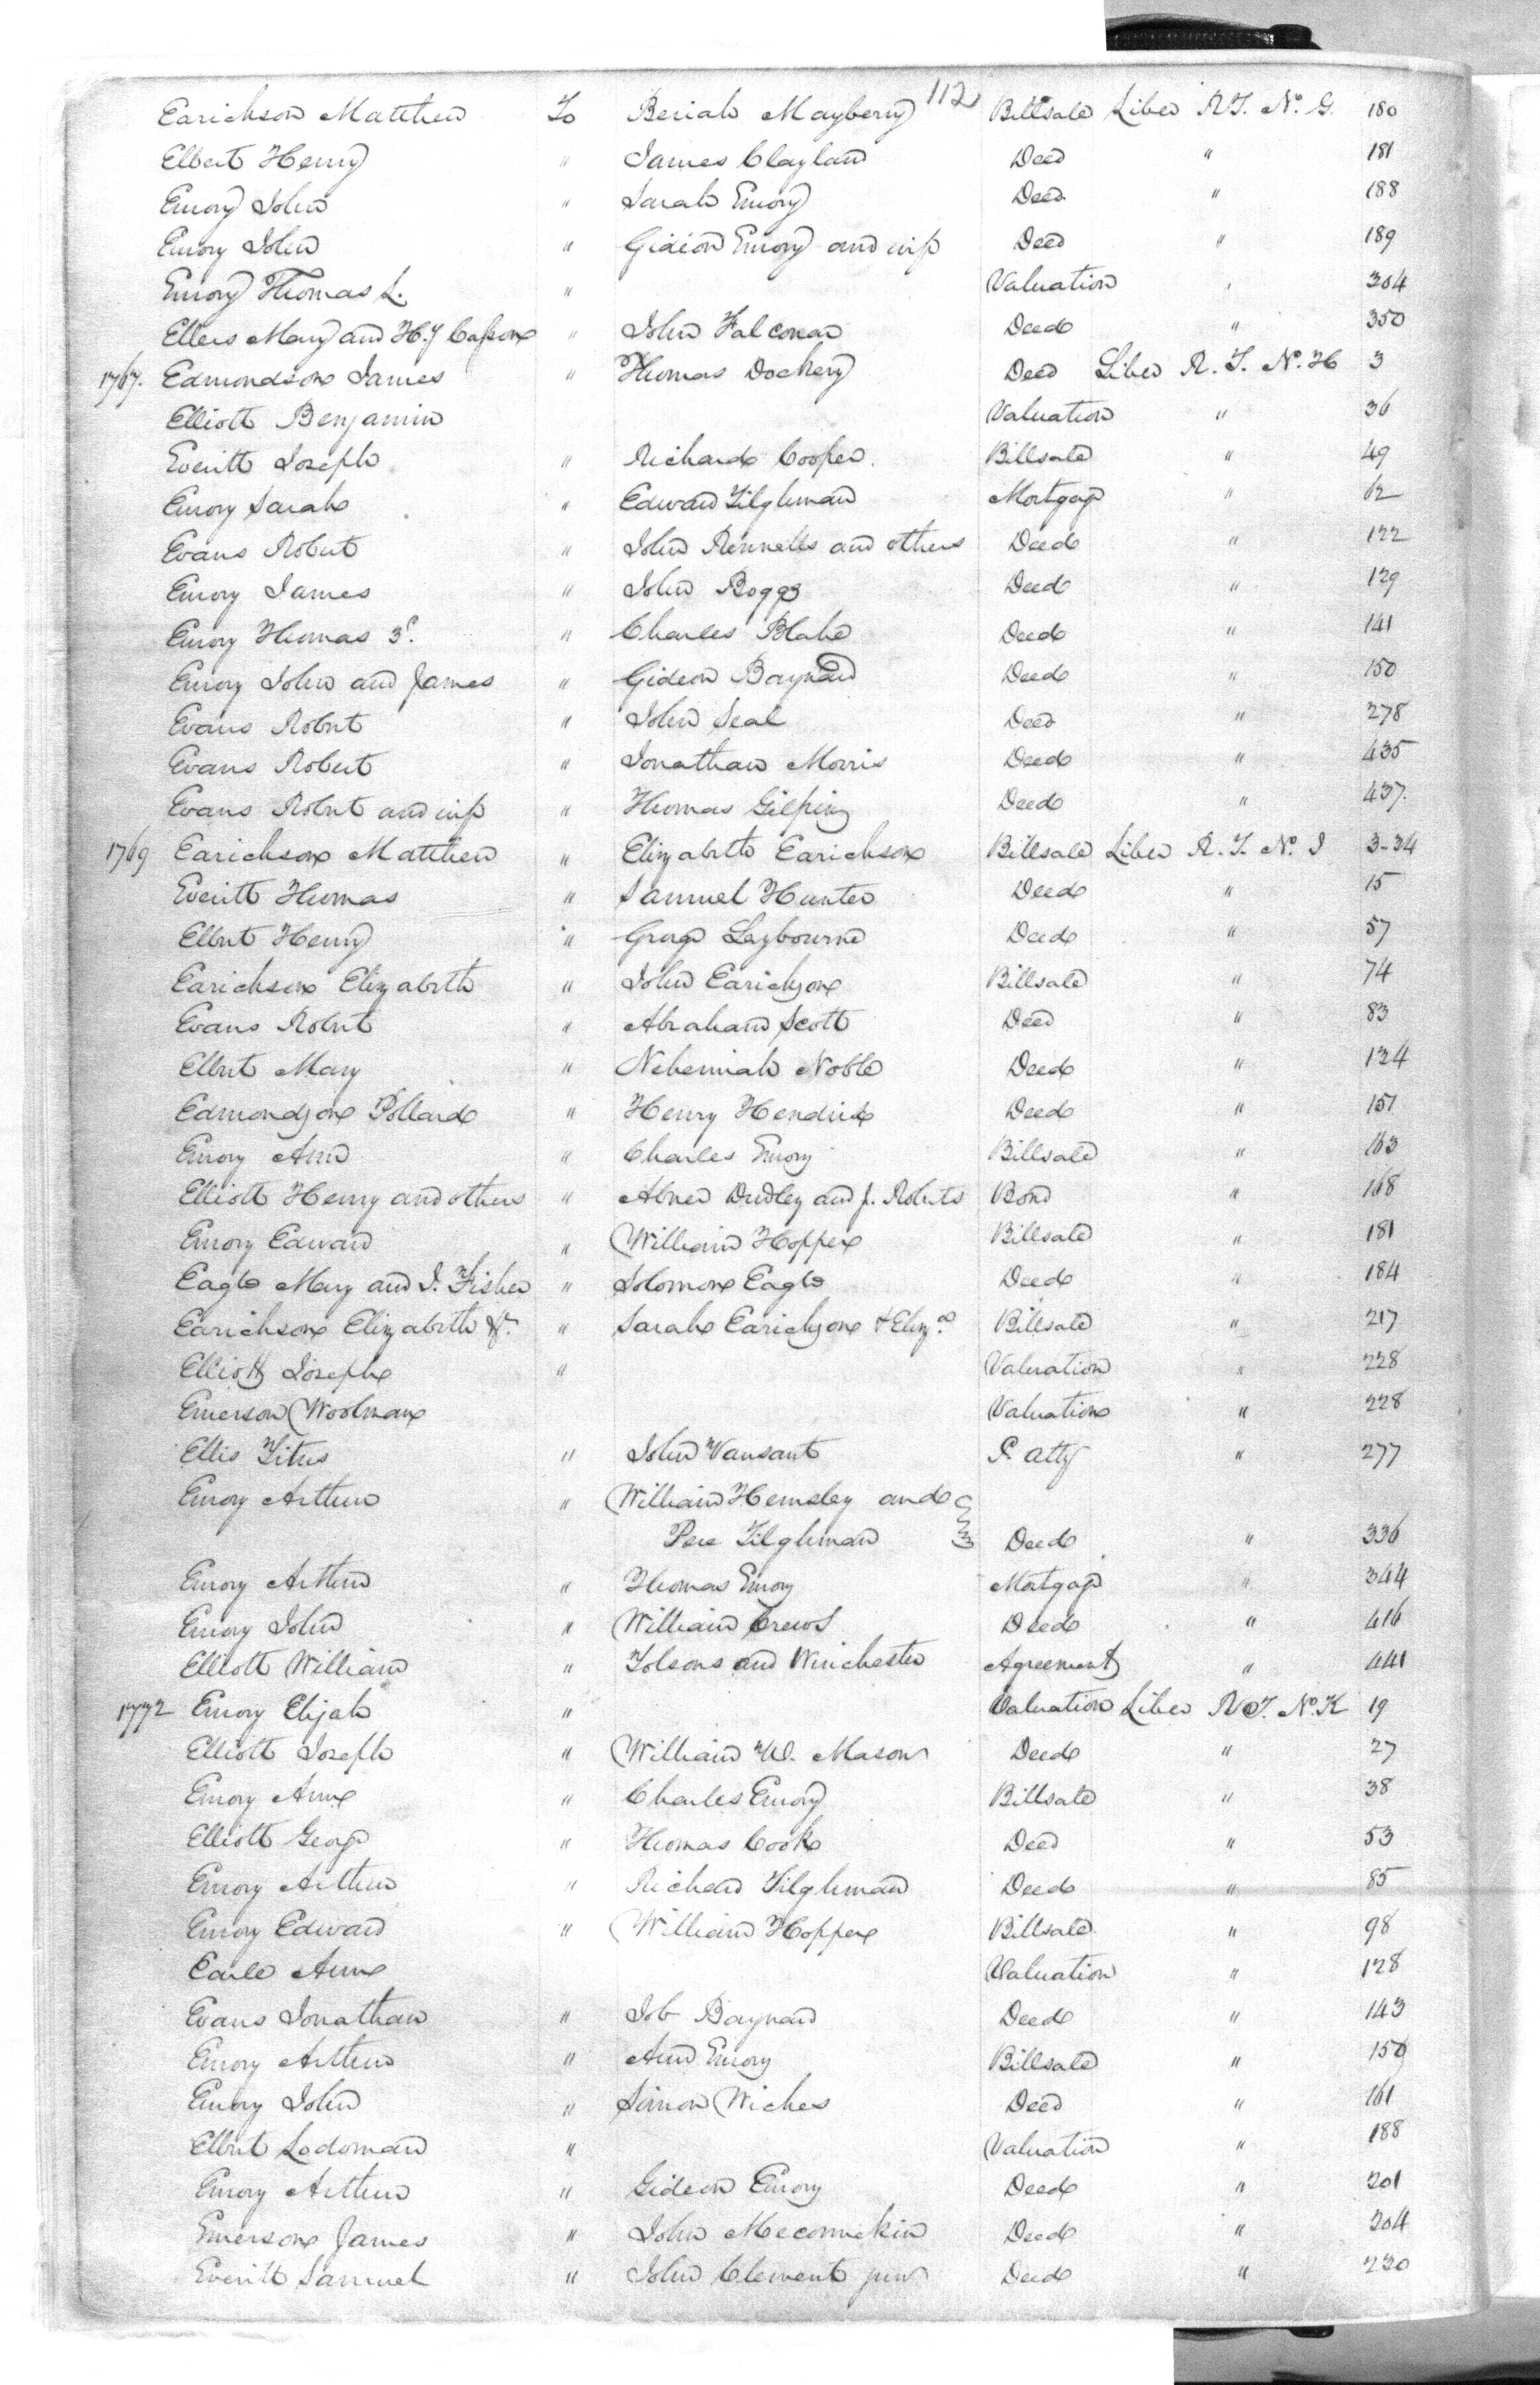 112
Earickson Matthew To Beriah Mayberry Billsale Liber R.T. No. G. 180
Elbert Henry " James Clayland Deed " 181
Emory John " Sarah Emory Deed " 188
Emory John " Gideon Emory and wife Deed " 189
Emory Thomas L. " Valuation " 304
Ellers Mary and H.J Cassone " John Falconar Deed " 350
1767. Edmondson James " Thomas Dockery Deed Liber R. T. No. H 3
Elliott Benjamin Valuation " 36
Everitt Joseph " Richard Cooper. Billsale " 49
Emory Sarah " Edward Tilghman Mortgage " 62
Evans Robert " John Rennells and others Deed " 122
Emory James " John Boggs Deed " 129
Emory Thomas 3d. " Charles Blake Deed " 141
Emory John and James " Gideon Baynard Deed " 150
Evans Robert " John Seal Deed " 278
Evans Robert " Jonathan Morris Deed " 435
Evans Robert and wife " Thomas Gilpin Deed " 437.
1769 Earickson Matthew " Elizabeth Earickson Billsale Liber R. T. No. I 3-34
Everitt Thomas " Samuel Hunter Deed " 15
Elbert Henry " George Leybourne Deed " 57
Earickson Elizabeth " John Earickson Billsale " 74
Evans Robert " Abraham Scott Deed " 83
Elbert Mary " Nehemiah Noble Deed " 124
Edmondson Pollard " Henry Hendrick Deed " 151
Emory Ann " Charles Emory Billsale " 163
Elliott Henry and others " Abner Dudley and J. Roberts Bond " 168
Emory Edward " William Hopper Billsale " 181
Eagle Mary and J. Fisher " Solomon Eagle Deed " 184
Earickson Elizabeth " Sarah Earickson & Eliza. Billsale " 217
Elliott Joseph " Valuation " 228
Emerson Woolman Valuation " 228
Ellis Titus " John Vansant P. Atty " 277
Emory Arthur " William Hemsley and
Pere Tilghman Deed " 336
Emory Arthur " Thomas Emory Mortgage " 344
Emory John " William Crews Deed " 416
Elliott William " Tolsons and Winchester Agreement " 441
1772 Emory Elijah " Valuation Liber R T. No. K 19
Elliott Joseph " William W. Mason Deed " 27
Emory Ann " Charles Emory Billsale " 38
Elliott George " Thomas Cook Deed " 53
Emory Arthur " Richard Tilghman Deed " 85
Emory Edward " William Hopper Billsale " 98
Earle Ann Valuation " 128
Evans Jonathan " Job Baynard Deed " 143
Emory Arthur " Ann Emory Billsale " 150
Emory John " Simon Wickes Deed " 161
Elbert Lodoman " Valuation " 188
Emory Arthur " Gideon Emory Deed " 201
Emerson James " John Meconnekin Deed " 204
Everitt Samuel " John Clement junr Deed " 220